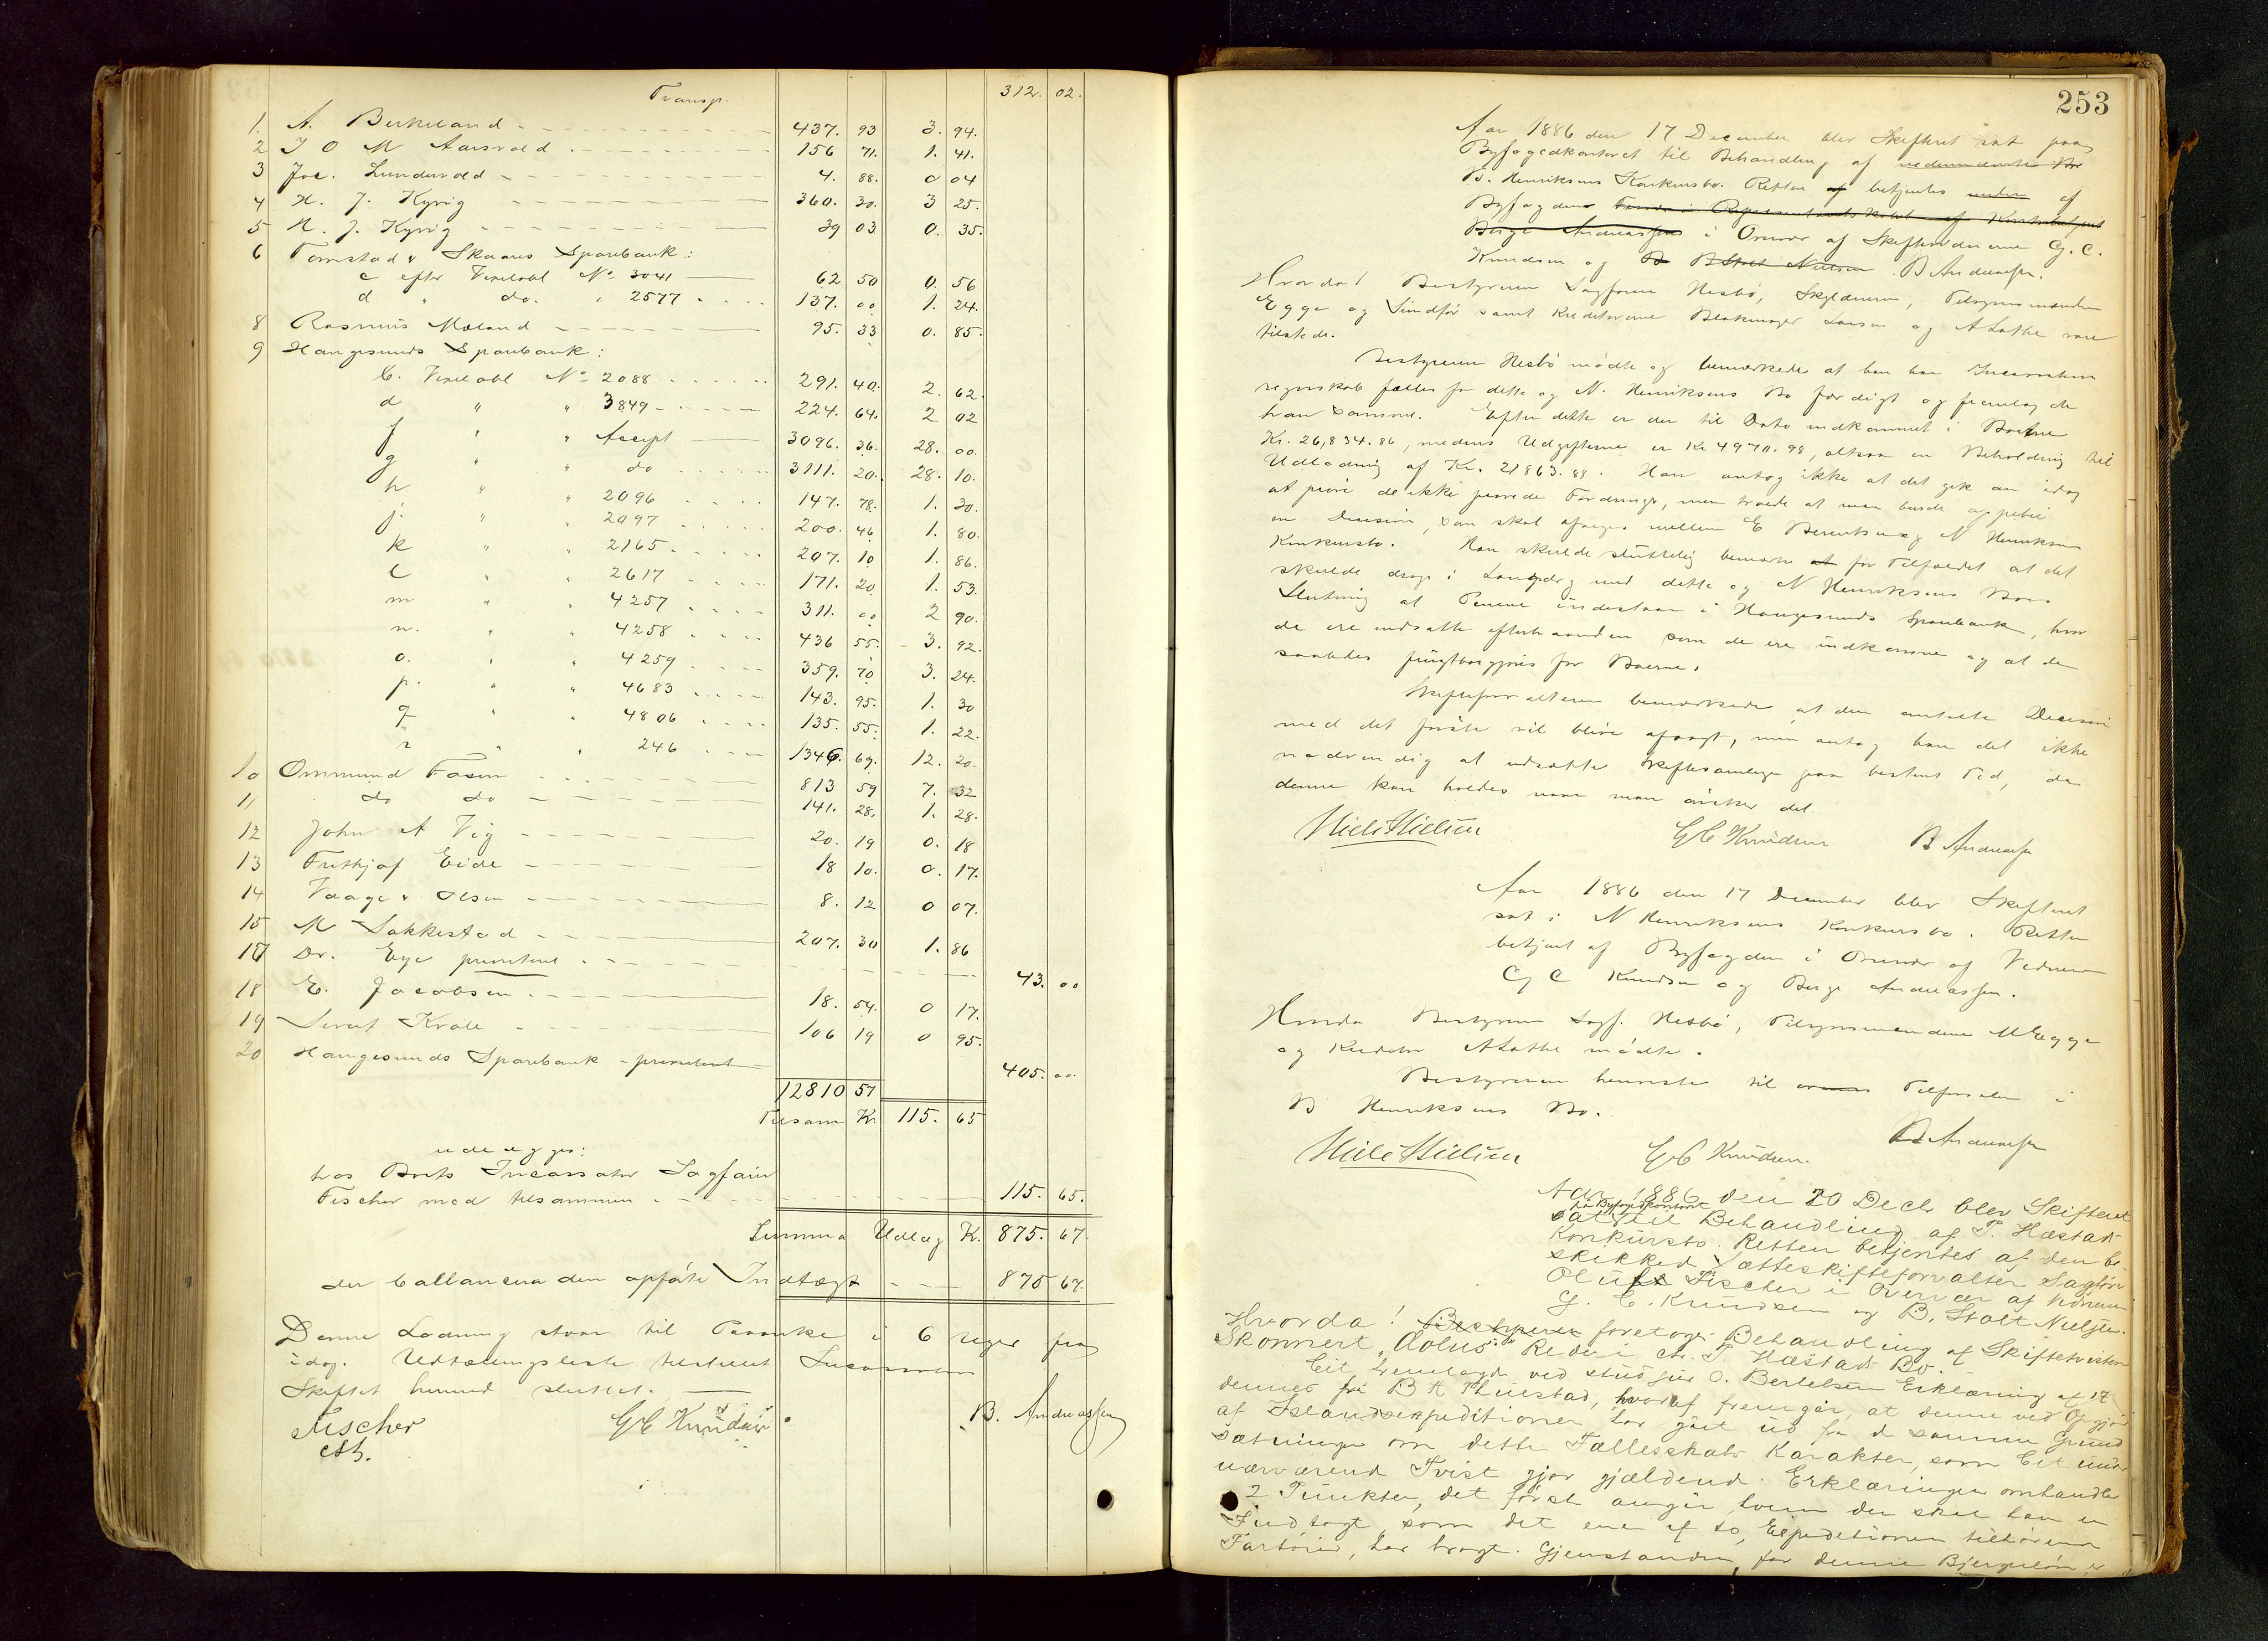 Transp. 312. 02.
1. A. Birkeland 437. 93 3. 94.
2 J O M Aarsvold 156 71. 1. 41.
3 Joe. Lundevold 4. 88. 0 04
4 H. J. Kyvig 360. 30. 3 25.
5 N. J. Kyvig 39 03 0. 35.
6 Tornstad & Skaares Sparebank:
c efter Vexelobl No 3041 62 50 0. 56
d " do. " 2577 137. 00 1. 24.
8 Rasmus Mæland 95. 33 0. 85.
9 Haugesunds Sparebank:
b. Vexelobl No 2088 291. 40. 2. 62.
d " " 3849 224. 64. 2 02
f " " Accept 3096. 36. 28. 00.
g " " do 3111. 20. 28. 10.
h " " 2096 147. 78. 1. 30.
j. " " 2097 200. 46 1. 80.
k " " 2165 207. 10 1. 86.
l " " 2617 171. 20. 1. 53.
m " " 4257 311. 00 2 90.
n. " " 4258 436 55. 3. 92.
o. " " 4259 359. 70 3. 24.
p. " " 4683 143. 95. 1. 30
q " " 4806 135. 55. 1. 22.
r " " 246 1346. 69. 12. 20.
10 Ommund Fosen 813 59 7. 32
11 do do 141. 28. 1. 28.
12 John A Vig 20. 19 0. 18
13 Frithjof Eide 18 10. 0. 17.
14 Vaage & Olsen 8. 12 0 07.
15 M Sakkestad 207. 30 1. 86
17 Dr. Eye prioriteret 43. 00
18 E. Jacobsen 18. 54. 0 17.
19 Sivert Krole 106 19 0 95.
20 Haugesunds Sparebank - prioriteret 405. 00.
12810 57
Tilsam Kr. 115. 65
udlægges:
hos Boets Incassator Sagfører
Fischer med tilsammen 115. 65.
Summa Udlæg Kr. 875. 67.
der ballancerer den opførte Indtægt 875 67.
Denne Lodning staar til Paaanke i 6 Uger fra
idag. Udtællingsliste tilstillet Incassator
Skiftet hermed sluttet.
Fischer G C Knudsen B. Andreassen
cst.
253
Aar 1886 den 17 December blev Skifteret sat paa
Byfogedkontoret til Behandling af nedennævnte Bo
B. Henriksens Konkursbo. Retten betjentes under af
Byfogden af
Berge Andreassen i Overvær af Skiftevidnerne G. C.
Knudsen og B Stolt Nielsen B Andreassen.
Hvorda! Bestyreren Sagfører Hesbø, Skyldneren, Tilsynsmændene
Egge og Sundfør samt Kreditorerne Larsen og A Lothe vare
tilstede.
Bestyreren Hesbø mødte og bemærkede at han har Incassations
regnskab fælles for dette og N. Henriksens Bo færdigt og fremlagde
han samme. Efter dette er der til Dato indkommet i Boerne
Kr. 26,834.86, medens Udgifterne er Kr 4970.98, altsaa en Beholdning til
Udlodning af Kr. 21863.88. Han antog ikke at det gik an idag
at prøve de ikke prøvede Fordringer, men troede at man burde oppebie
en Decision, som skal afsiges mellem E Berentsen og N Henriksens
Konkursbo. Han skulde sluttelig bemærke at for Tilfældet at det
skulde drage i Langdrag med dette og N Henriksens Boes
Slutning at Pengene indestaar i Haugesunds Sparebank, hvor
de ere indsatte efterhaanden som de ere indkomne og at de
saaledes frugtbargjøres for Boerne.
Skifteforvalteren bemærkede at den omtalte Decision
med det første vil blive afsagt, men antog han det ikke
nødvendig at udsætte Skiftesamlingen paa bestemt Tid, da
denne kan holdes naar man ønsker det.
Niels Nielsen G C Knudsen B Andreassen
Aar 1886 den 17 December blev Skifteret
sat i N Henriksens Konkursbo. Retten
betjent af Byfogden i Overvær af Vidnerne
G C Knudsen og Berge Andreassen.
Hvorda Bestyreren Sagf. Hesbø, Tilsynsmændene M Egge
og Kreditor A Lothe mødte.
Bestyreren henviste til Tilførselen i
B Henriksens Bo.
Niels Nielsen G C Knudsen. B Andreassen
Aar 1886 den 20 Decbr blev Skifteret
paa Byfogedkontoret
sat til Behandling af T. Hæstads
Konkursbo. Retten betjentes af den be-
skikkede Sætteskifteforvalter Sagfører
Oluf Fischer i Overvær af Vidnerne
G. C. Knudsen og B. Stolt Nielsen.
Hvorda! Bestyreren foretoges Behandling af Skiftetvisten
Skonnert „Æolus's" Rederi ctr. T. Hæstads Bo.
Cit. fremlagde ved stud jur O. Bertelsen Erklæring af 17
dennes fra B A Thuestad, hvoraf fremgår, at denne ved Opgjør
af Islandsexpeditionen har gået ud fra d samme Grund
sætninger om dette Fællesskabs Karakter, som Cit. under
nærværende Tvist gjør gjældende. Erklæringen omhandler
2 Punkter, det første angår, hvem der skal ha en
Indtægt, som det ene af to, Expeditionen tilhørende
Fartøier, har bragt. Gjenstanden for denne Bjergeløn er